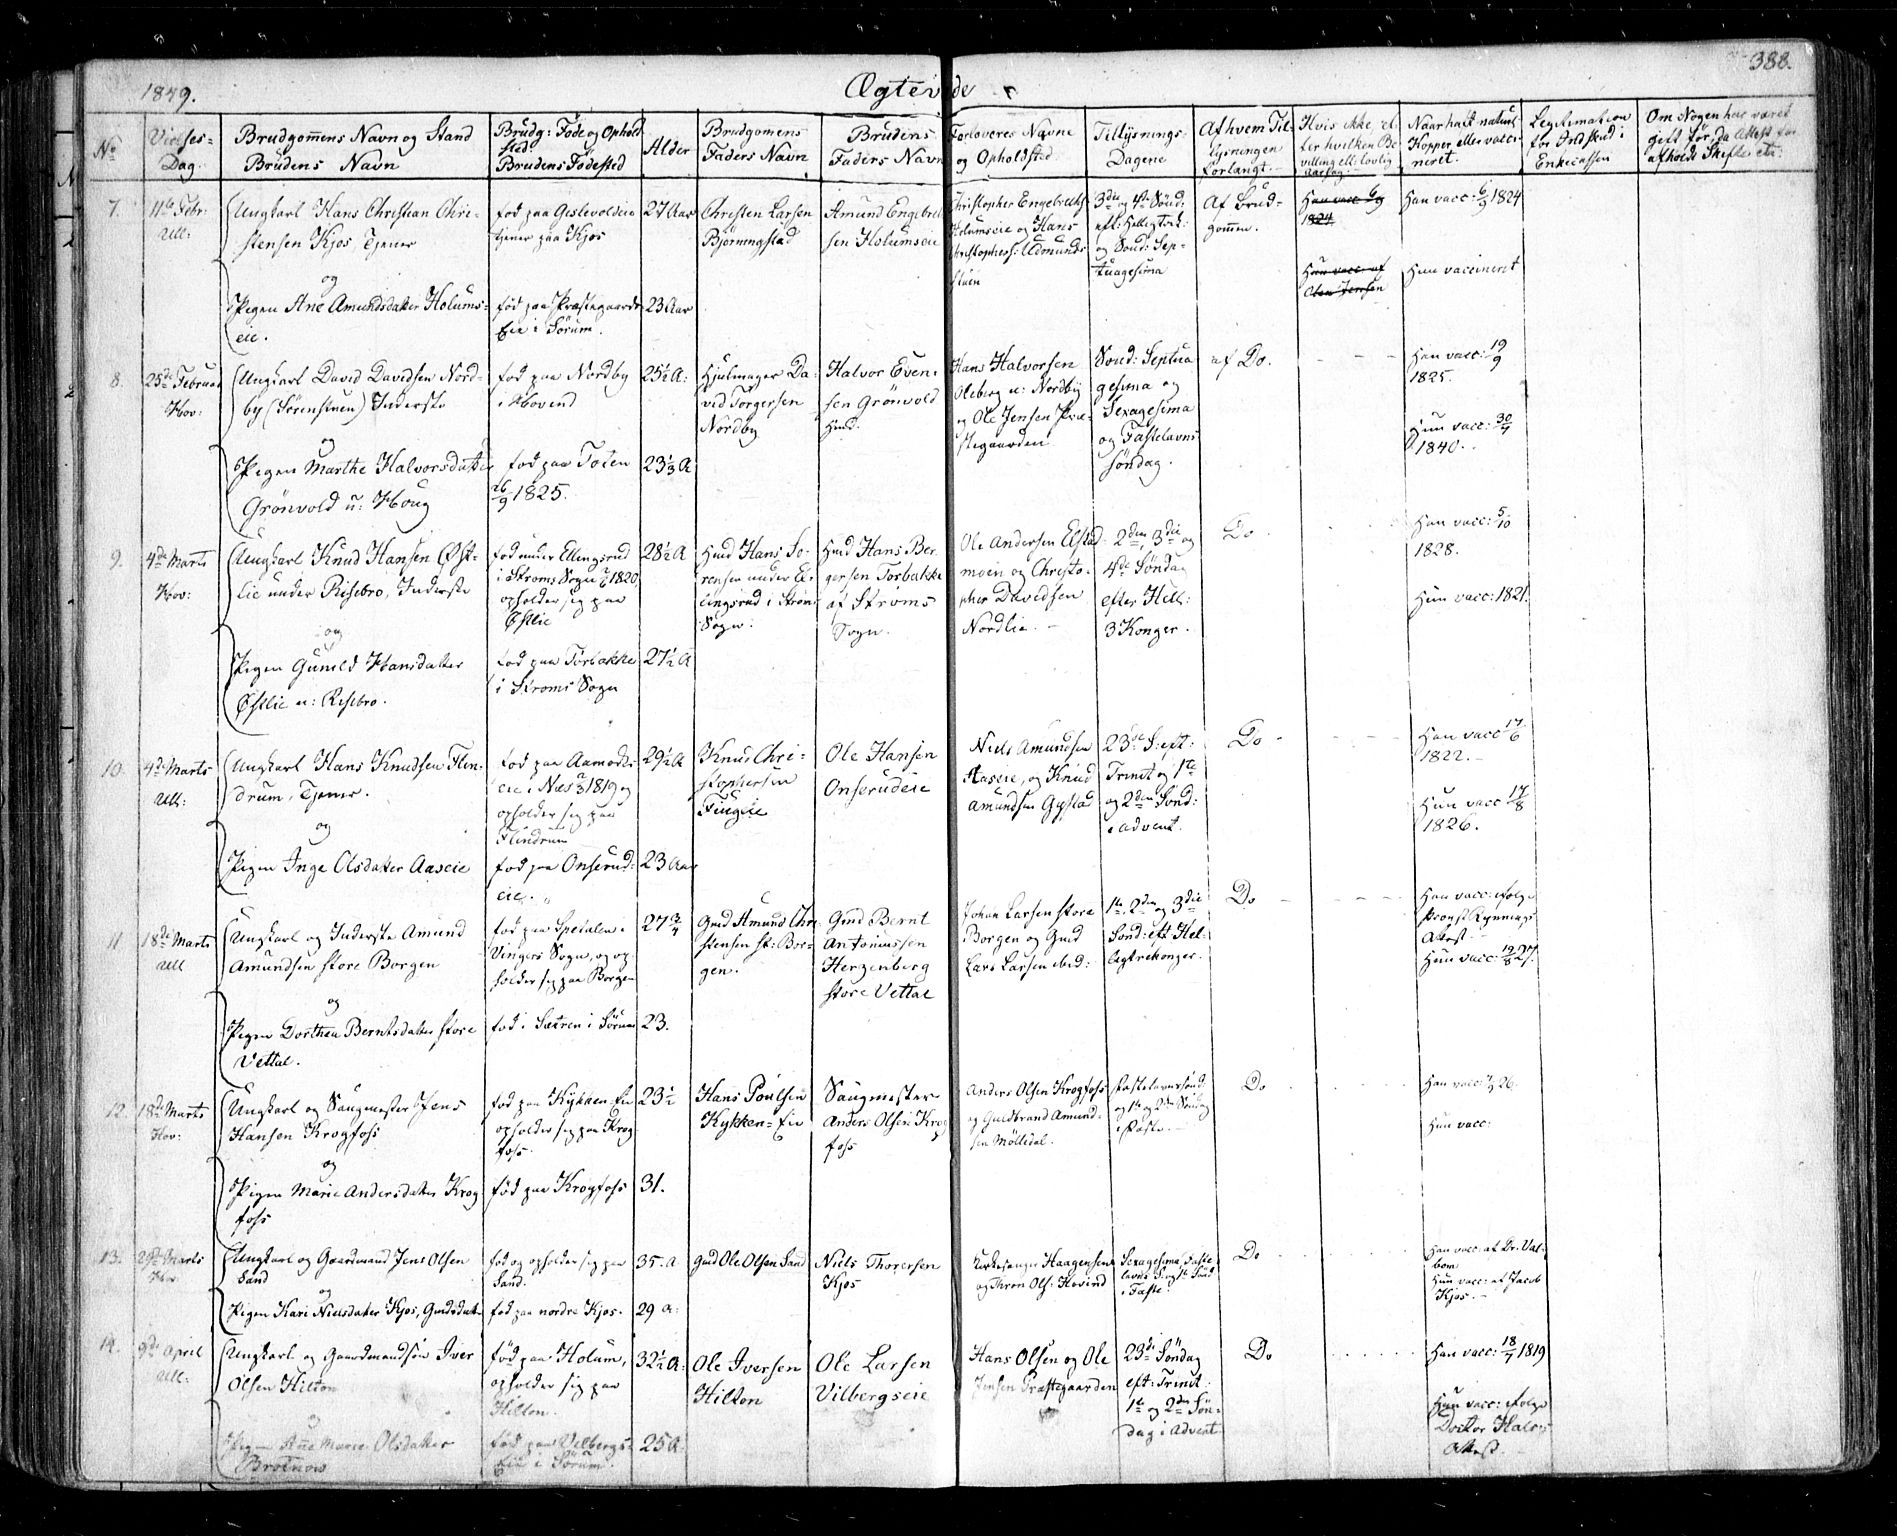 1849. Ægteviede 388.
No
Vielses-
Dag.
Brudgom̄ens Navn og Stand
Brudens Navn
Brudg: Føde og Ophold
sted
Brudens Fødested
Alder
Brudgomens
Faders Navn
Brudens
Faders Navn
Forloveres Navne
og Opholdsted
Tillysnings-
Dagene
Af hvem Til-
lysningen
forlangt.
Hvis ikke, ef-
ter hvilken Be-
villing ell: lovlig
Naar havt naturl:
Kopper eller vacci-
neret.
Legitimation
for Indskud i
Enkecassen
Om Nogen har været
gift før, da Attest for
afholdt Skifte etc:
7.
11te Febr.
Ull:
Ungkarl Hans Christian Chri-
stensen Kjos, Tjener
og
Pigen Ane Amundsdatter Holums-
eie.
fød paa Gislevoldeie
tjener paa Kjos
fød paa Præstegaards
Eie i Sørum.
27 Aar
23 Aar
Christen Larsen
Bjørningstad
Amund Engebret-
sen Holumseie
Christopher Engebretss:
Holumseie og Hans
Christophers: Udmunds-
stuen
3die og 4de Sønd:
eft: Helligtrek:
og Sønd: Sep-
tuagesima
Af Brud-
gom̄en.
Han vacc: 6/9
1824
Hun vacc: af
Olea Jensen
Han vacc: 6/9 1824
Hun vaccineret
8.
25de Februar
Hov:
Ungkarl David Davidsen Nord-
by (Sørenstuen) Inderste
og
Pigen Marthe Halvorsdatter
Grønvold u: Houg
fød paa Nordby
i Hovind
fød paa Toten
26/9 1825.
25½ A:
23⅓ A
Hjulmager Da-
vid Torgersen
Nordby
Halvor Even-
sen Grønvold
Hmd.
Hans Halvorsen
Oleberg u: Nordby
og Ole Jensen Præ-
stegaarden
Sønd: Septua
gesima og
Sexagesima
og Fastelavns
søndag.
af Do.
Han vacc: 19/9
1825.
Hun vacc: 30/7
1840.
9.
4de Marts
Hov:
Ungkarl Knud Hansen Øst-
lie under Risebro, Inderste
og
Pigen Gunild Hansdatter
Østlie u: Risebro.
fød under Ellingsrud
i Strøms Sogn 1820,
opholder sig paa
Østlie
fød paa Torbakke
i Strøms Sogn
28½ A
27½ A
Hmd Hans So-
rensen under El-
lingsrud i Strøms
Sogn.
Hmd Hans Ber-
gersen Torbakke
af Strøms
Sogn.
Ole Andersen Elstad-
moen og Christo-
pher Davidsen
Nordlie.
2den, 3die og
4de Søndag
efter Hell:
3 Konger.
Do
Han vacc: 5/10
1828.
Hun vacc: 1821.
10.
4de Marts
Ull:
Ungkarl Hans Knudsen Flin-
drum, Tjener.
og
Pigen Inge Olsdatter Aaseie
fød paa Aamodts
eie i Næs 1819 og
opholder sig paa
Flindrum
fød paa Onserud-
eie.
29½ A
23 Aar
Knud Chri-
stophersen
Ole Hansen
Onserudeie
Niels Amundsen
Aaseie, og Knud
Amundsen Gystad
23de S: eft:
Trinit og 1ste
og 2den Sønd:
i Advent.
Do
Han vacc 17/6
1822.
Hun vacc 17/8
1826.
11.
18de Marts
Ull
Ungkarl og Inderste Amund
Amundsen store Borgen
og
Pigen Dorthea Berntsdatter store
Vettal.
fød paa Spetalen i
Vingers Sogn, og op-
holder sig paa Borgen
fød i Sætren i Sørum
27¾
23.
Gmd Amund Chri-
stensen st: Bor-
gen.
Gmd Bernt
Antoniussen
Herzenberg
store Vettal
Johan Larsen store
Borgen og Gmd
Lars Larsen ibid:
1ste, 2den og 3die
Sønd: eft Hel-
ligtrekonger.
Do
Han vacc: ifølge
Provst Rynnings
Attest
Hun vacc: 19/8 27.
12.
18de Marts
Hov:
Ungkarl og Saugmester Jens
Hansen Krogfoss
og
Pigen Marie Andersdatter Krog
foss
fød paa Kykken-Eie
opholder sig paa Krog
foss.
fød paa Krogfoss
23½
31.
Hans Poulsen
Kykken-Eie
Saugmester
Anders Olsen Krog
foss
Anders Olsen Krogfoss
og Guldbrand Amund-
sen Mølledal.
Fastelavnssønd
og 1ste og 2den Søndag
i Faste.
Do
Han vacc: 26.
Hun vacc:
13.
Marts
Hov:
Ungkarl og Gaardmand Jens Olsen
Sand
og
Pigen Kari Nielsdatter Kjos, Gmdsdat:
fød og opholder sig paa
Sand.
fød paa nordre Kjos.
35. A
29 A:
Gmd Ole Olsen Sand
Niels Thoresen
Kjos
Kirkesanger Haagensen
og Thron Ols: Hovind
Sexagesima, Faste-
lavns S: og 1ste Sønd
i Faste.
Do
Han vacc: af Dr. Val-
bom
Hun vacc: af Jacob
Kjos.
14.
9de April
Ull:
Ungkarl og Gaardmandsøn Iver
Olsen Hilton
og
Pigen Ane Marie Olsdatter
Brotnow
fød paa Holum,
opholder sig paa
Hilton.
fød paa Vilbergs-
Eie i Sørum.
32½ A:
25 A.
Ole Iversen
Hilton
Ole Larsen
Vilbergseie
Hans Olsen og Ole
Jensen Præstegaarden
23de Søndag
eft: Trinit:
1ste og 2den Søn-
dag i Advent
Do
Han vacc: 18/7 1819
Hun vacc: ifølge
Doctor Hals's
Attest.